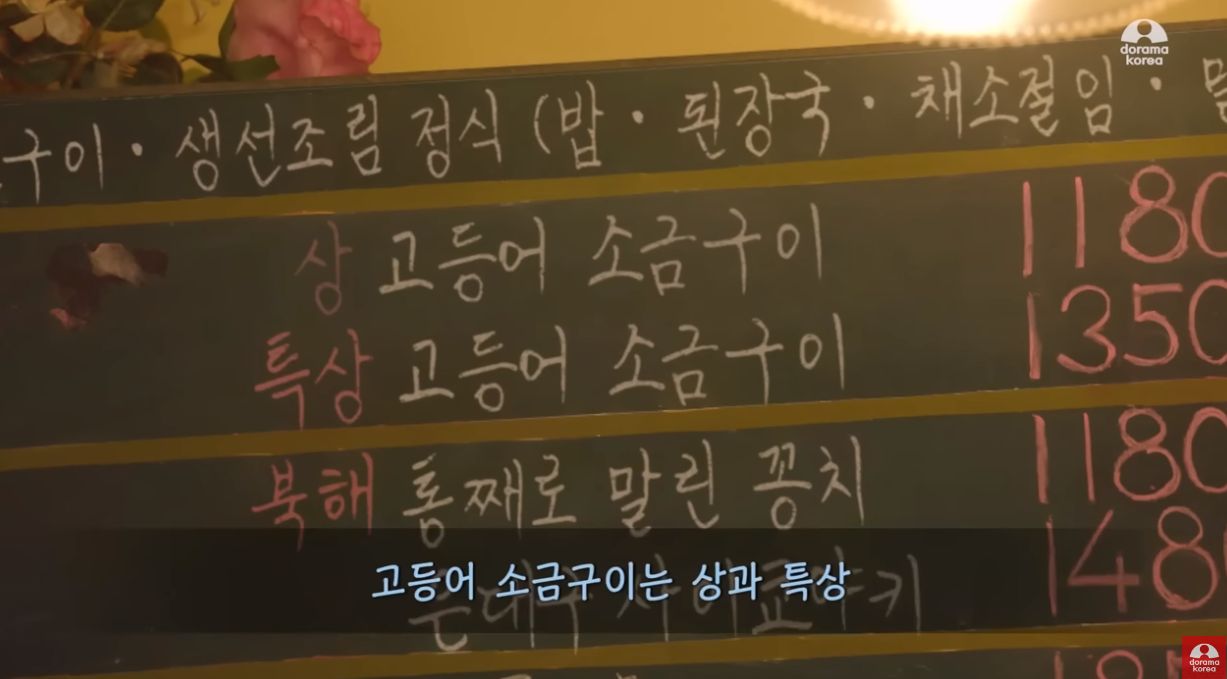 dorama korea
구이 · 생선조림 정식 (밥 · 된장국 · 채소절임 ·
상 고등어 소금구이 1180
특상 고등어 소금구이 1350
북해 통째로 말린 꽁치 1180
은대구 사이쿄야키 148
고등어 소금구이는 상과 특상
dorama korea